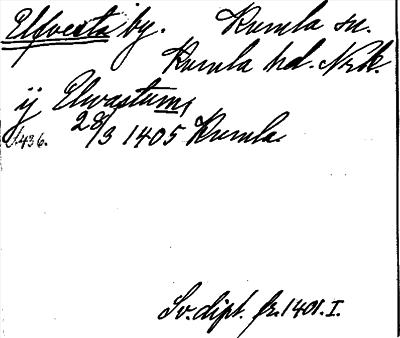 Elfvesta by. Kumla sn.
Kumla hd. Nrk.
ij Elwastum,
28/3 1405 Kumla.
436.
Sv. dipl. fr. 1401. I.